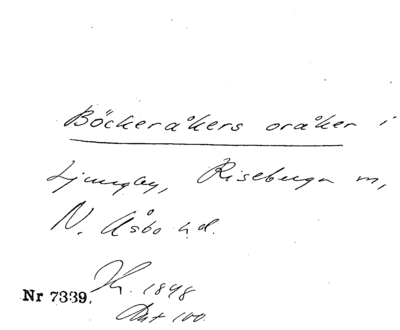 Böckeråkers oråker i
Ljungby, Riseberga m,
N. Åsbo hd.
Nr 7339. 1848
100.